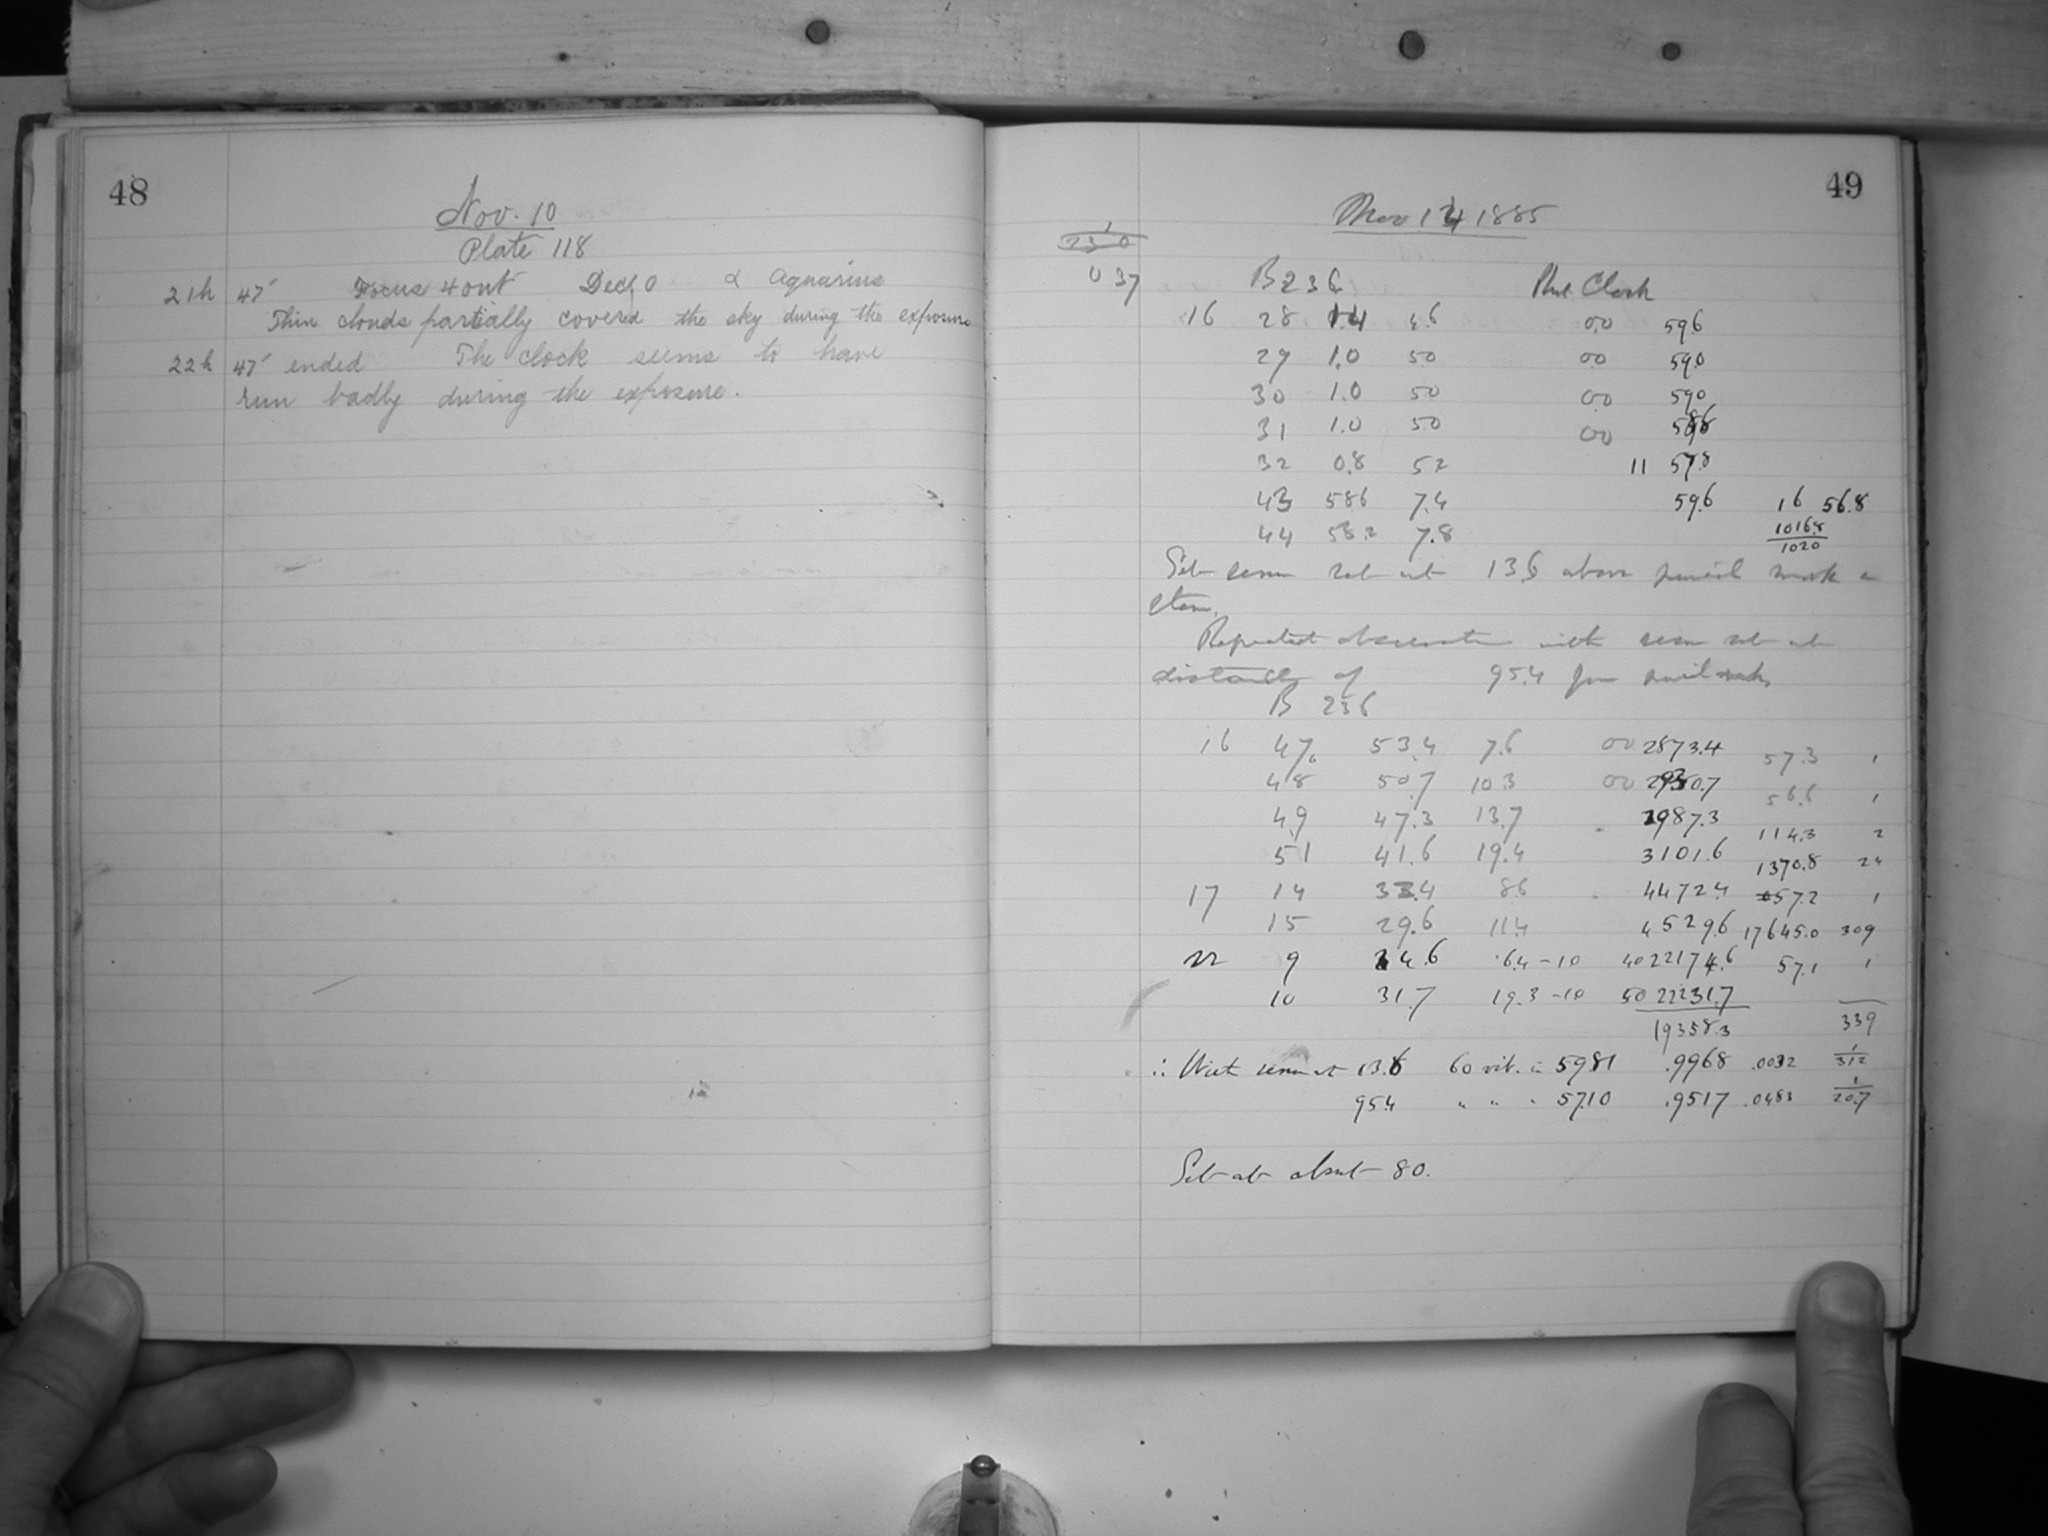 48
Nov. 10
Plate 118
21h 47' Focus 4 out Decl, 0 α Aquarius
Thin clouds partially covered the sky during the exposure
22h 47' ended The clock seems to have
run badly during the exposure.
49
Nov 14 1885
0 37 B 236 Clock
16 28 1.4 4.6 00 59.6
29 1.0 50 00 59.0
30 1.0 50 00 59.0
31 1.0 50 00
32 0.8 52 11 57.8
43 58.6 7.4 59.6 16 56.8
44 58.2 7.8 1016.8
1020
Set at 13.6 above pencil mark
Repeated observation with set at
distance of 95.4 from pencil mark
B 236
16 47 53.4 7.6 00 2873.4 57.3 1
48 50.7 10.3 00 2930.7 56.6 1
49 47.3 13.7 2987.3 114.3 2
51 41.6 19.4 3101.6 1370.8 24
17 14 8.6 4472.4 57.2 1
15 29.6 11.4 4529.6 17645.0 309
22 9 4.6 6.4 - 10 40 22174.6 57.1 1
10 31.7 19.3 - 10 50 22231.7
19358.3 339
∴ With at 13.6 60 vib. = 59.81 .9968 .0032 1/312
95.4 " " " 57.10 .9517 .0483 1/20.7
Set at about 80.